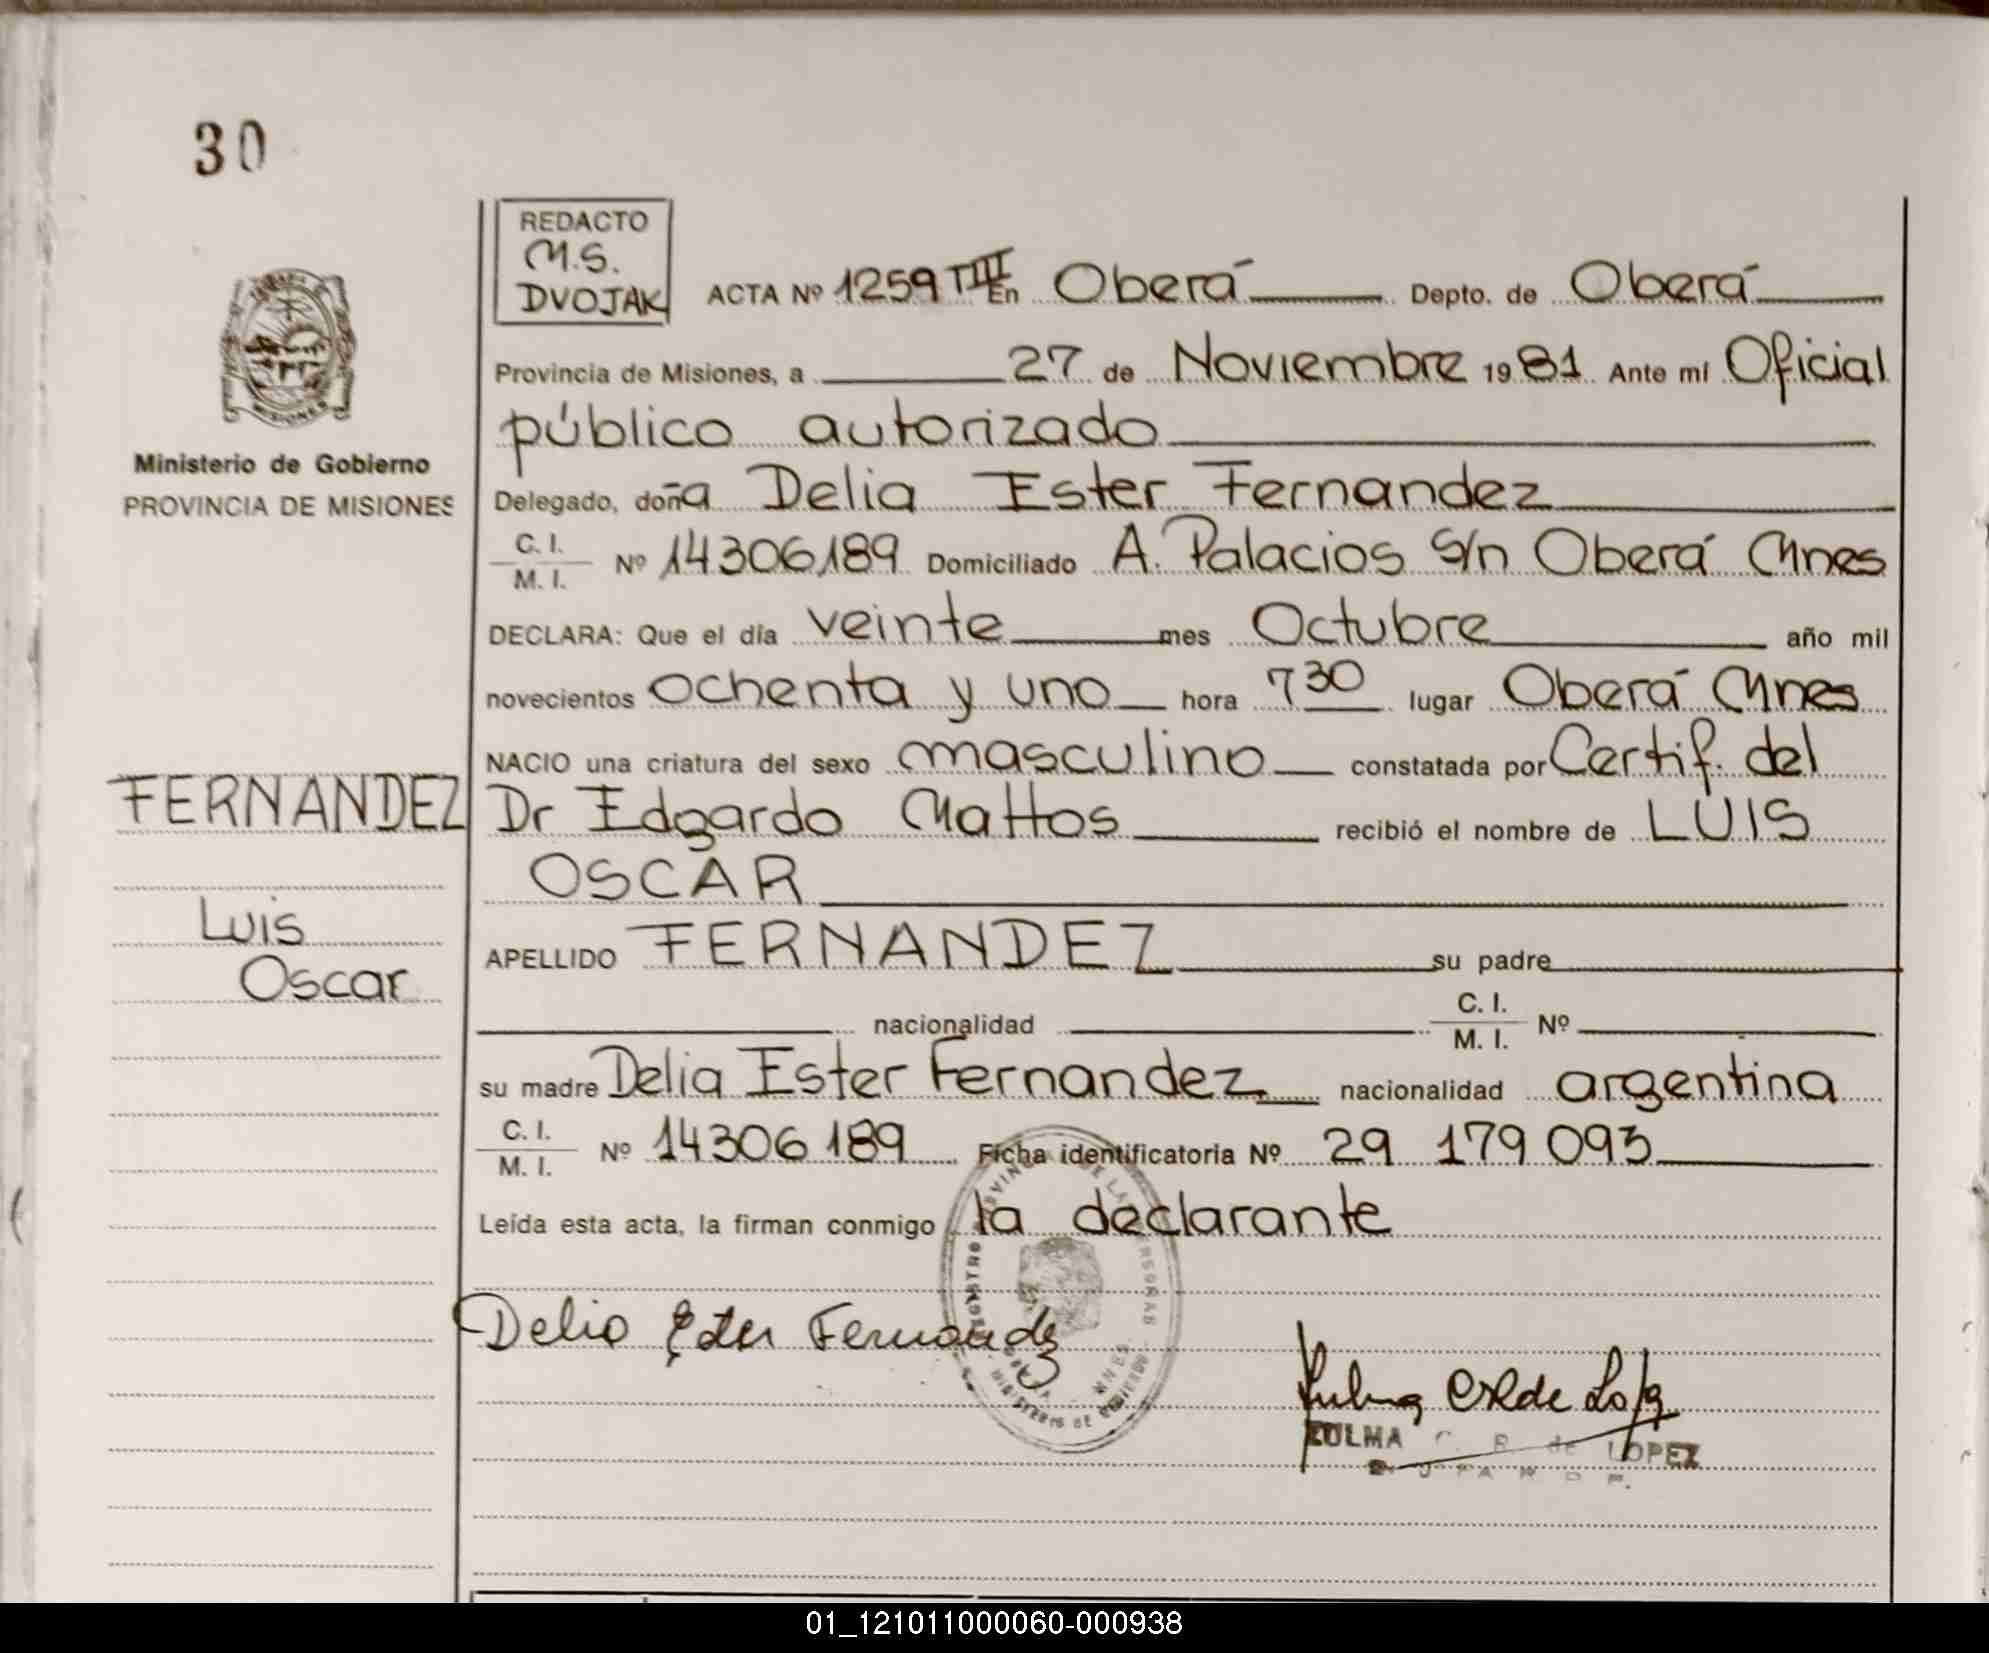 30
REDACTO
M.S.
DVOJAK
ACTA Nº 1259 TIII En Oberá Depto. de Oberá
Provincia de Misiones, a 27 de Noviembre 1981 Ante mí Oficial
público autorizado
Ministerio de Gobierno
PROVINCIA DE MISIONES
Delegado, doña Delia Ester Fernandez
C. I.
M. I. Nº 14306189 Domiciliado A. Palacios S/n Oberá Mnes
DECLARA: Que el día veinte mes Octubre año mil
novecientos ochenta y uno hora 7 30 lugar Oberá Mnes
NACIO una criatura del sexo masculino constatada por Certif. del
FERNANDEZ
Dr Edgardo Mattos recibió el nombre de LUIS
OSCAR
Luis
Oscar
APELLIDO FERNANDEZ su padre
nacionalidad C. I.
M. I. Nº
su madre Delia Ester Fernandez nacionalidad argentina
C. I.
M. I. Nº 14306189 Ficha identificatoria Nº 29 179 093
Leída esta acta, la firman conmigo la declarante
Delia Ester Fernandez
ZULMA C. R. de LOPEZ
01_121011000060-000938